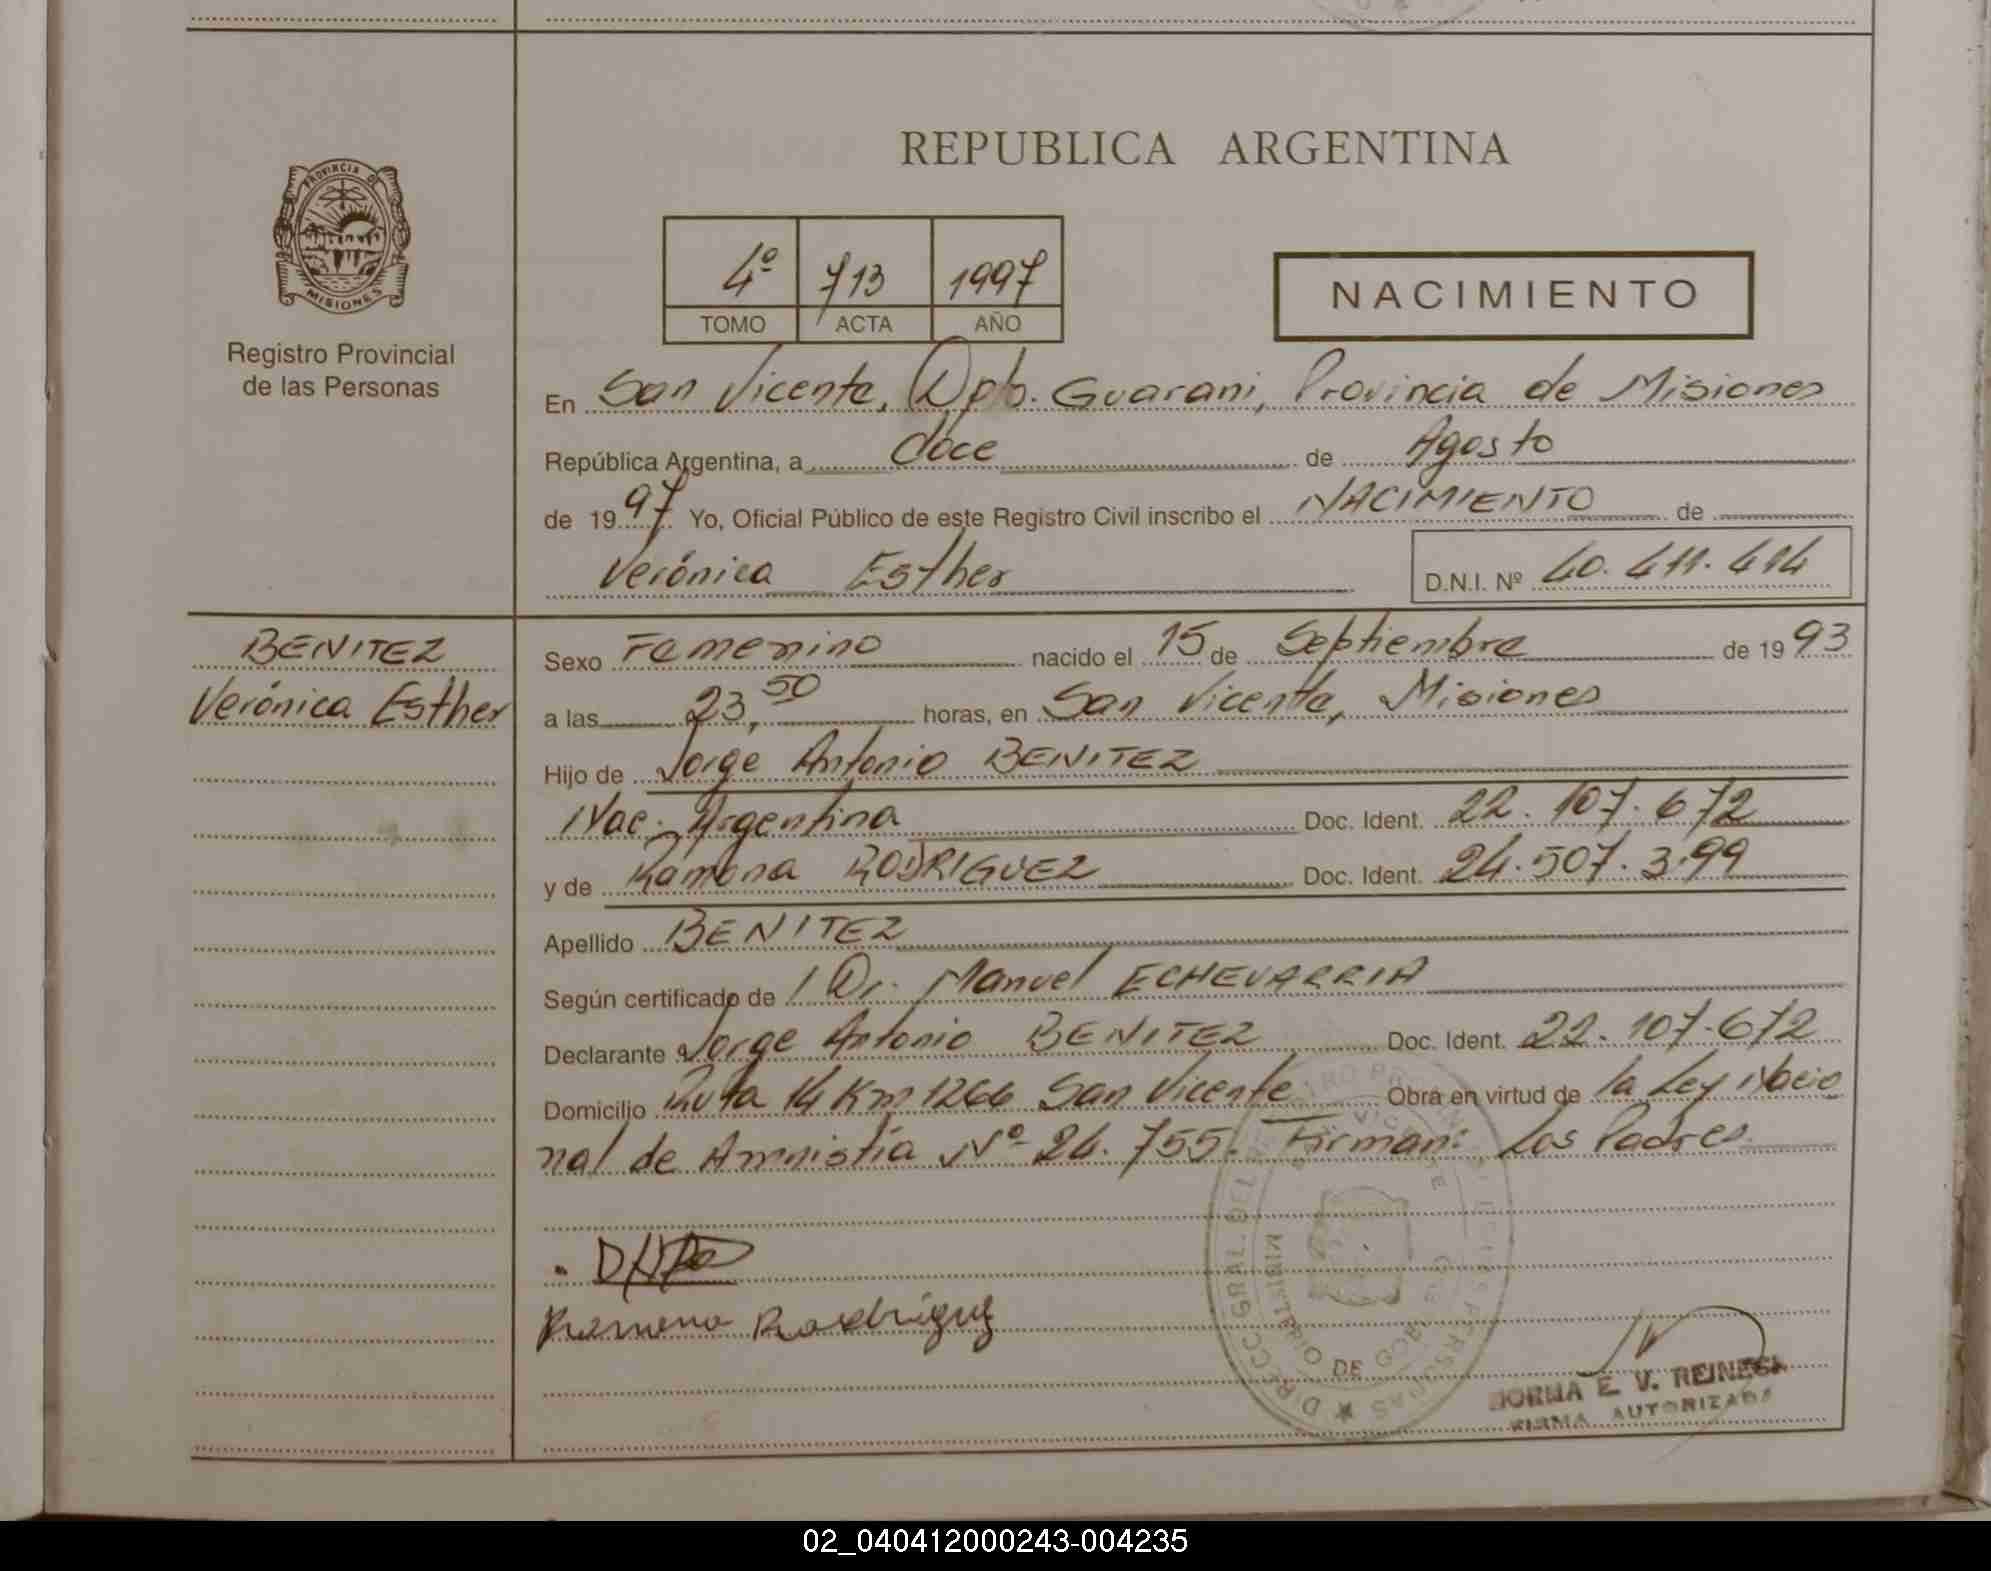 PROVINCIA DE
MISIONES
Registro Provincial
de las Personas
REPUBLICA ARGENTINA
4º 713 1997
TOMO ACTA AÑO
NACIMIENTO
En San Vicente, Dpto. Guarani, Provincia de Misiones
República Argentina, a doce de Agosto
de 1997 Yo, Oficial Público de este Registro Civil inscribo el NACIMIENTO de
Verónica Esther D.N.I. Nº 40.411.414
BENITEZ
Verónica Esther
Sexo Femenino nacido el 15 de Septiembre de 1993
a las 23,50 horas, en San Vicente, Misiones
Hijo de Jorge Antonio BENITEZ
Nac. Argentina Doc. Ident. 22.107.672
y de Ramona RODRIGUEZ Doc. Ident. 24.507.399
Apellido BENITEZ
Según certificado de Dr. Manuel ECHEVARRIA
Declarante Jorge Antonio BENITEZ Doc. Ident. 22.107.672
Domicilio Ruta 14 Km 1266 San Vicente Obra en virtud de la Ley Nacio
nal de Amnistía Nº 24.755. Firman: Los Padres
Ramona Rodriguez
DIRECC. GRAL. DEL REGISTRO PROVINCIAL DE LAS PERSONAS
MINISTERIO DE GOBIERNO
SAN VICENTE
NORMA E. V. REINECK
FIRMA AUTORIZADA
02_040412000243-004235